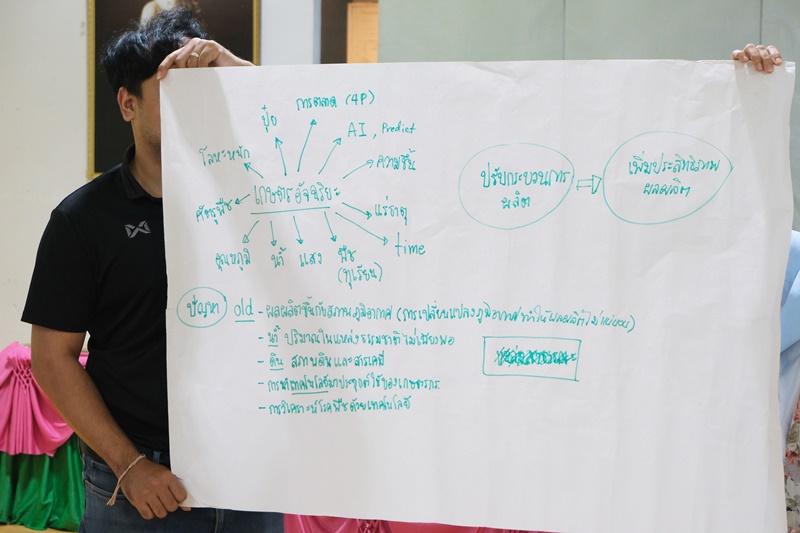 ปุ๋ย
การตลาด (4P)
AI, Predict
โลหะหนัก
ความชื้น
เกษตรอัจฉริยะ
ศัตรูพืช
แร่ธาตุ
อุณหภูมิ
น้ำ
แสง
พืช
(ทุเรียน)
time
ปรับกระบวนการ
ผลิต
เพิ่มประสิทธิภาพ
ผลผลิต
ปัญหา old - ผลผลิตขึ้นกับสภาพภูมิอากาศ (การเปลี่ยนแปลงภูมิอากาศทำให้ผลผลิตไม่แน่นอน)
- น้ำ ปริมาณในแหล่งธรรมชาติไม่เพียงพอ
- ดิน สภาพดินและสารเคมี
- การนำเทคโนโลยีมาประยุกต์ใช้ของเกษตรกร
- การวิเคราะห์โรคพืชด้วยเทคโนโลยี